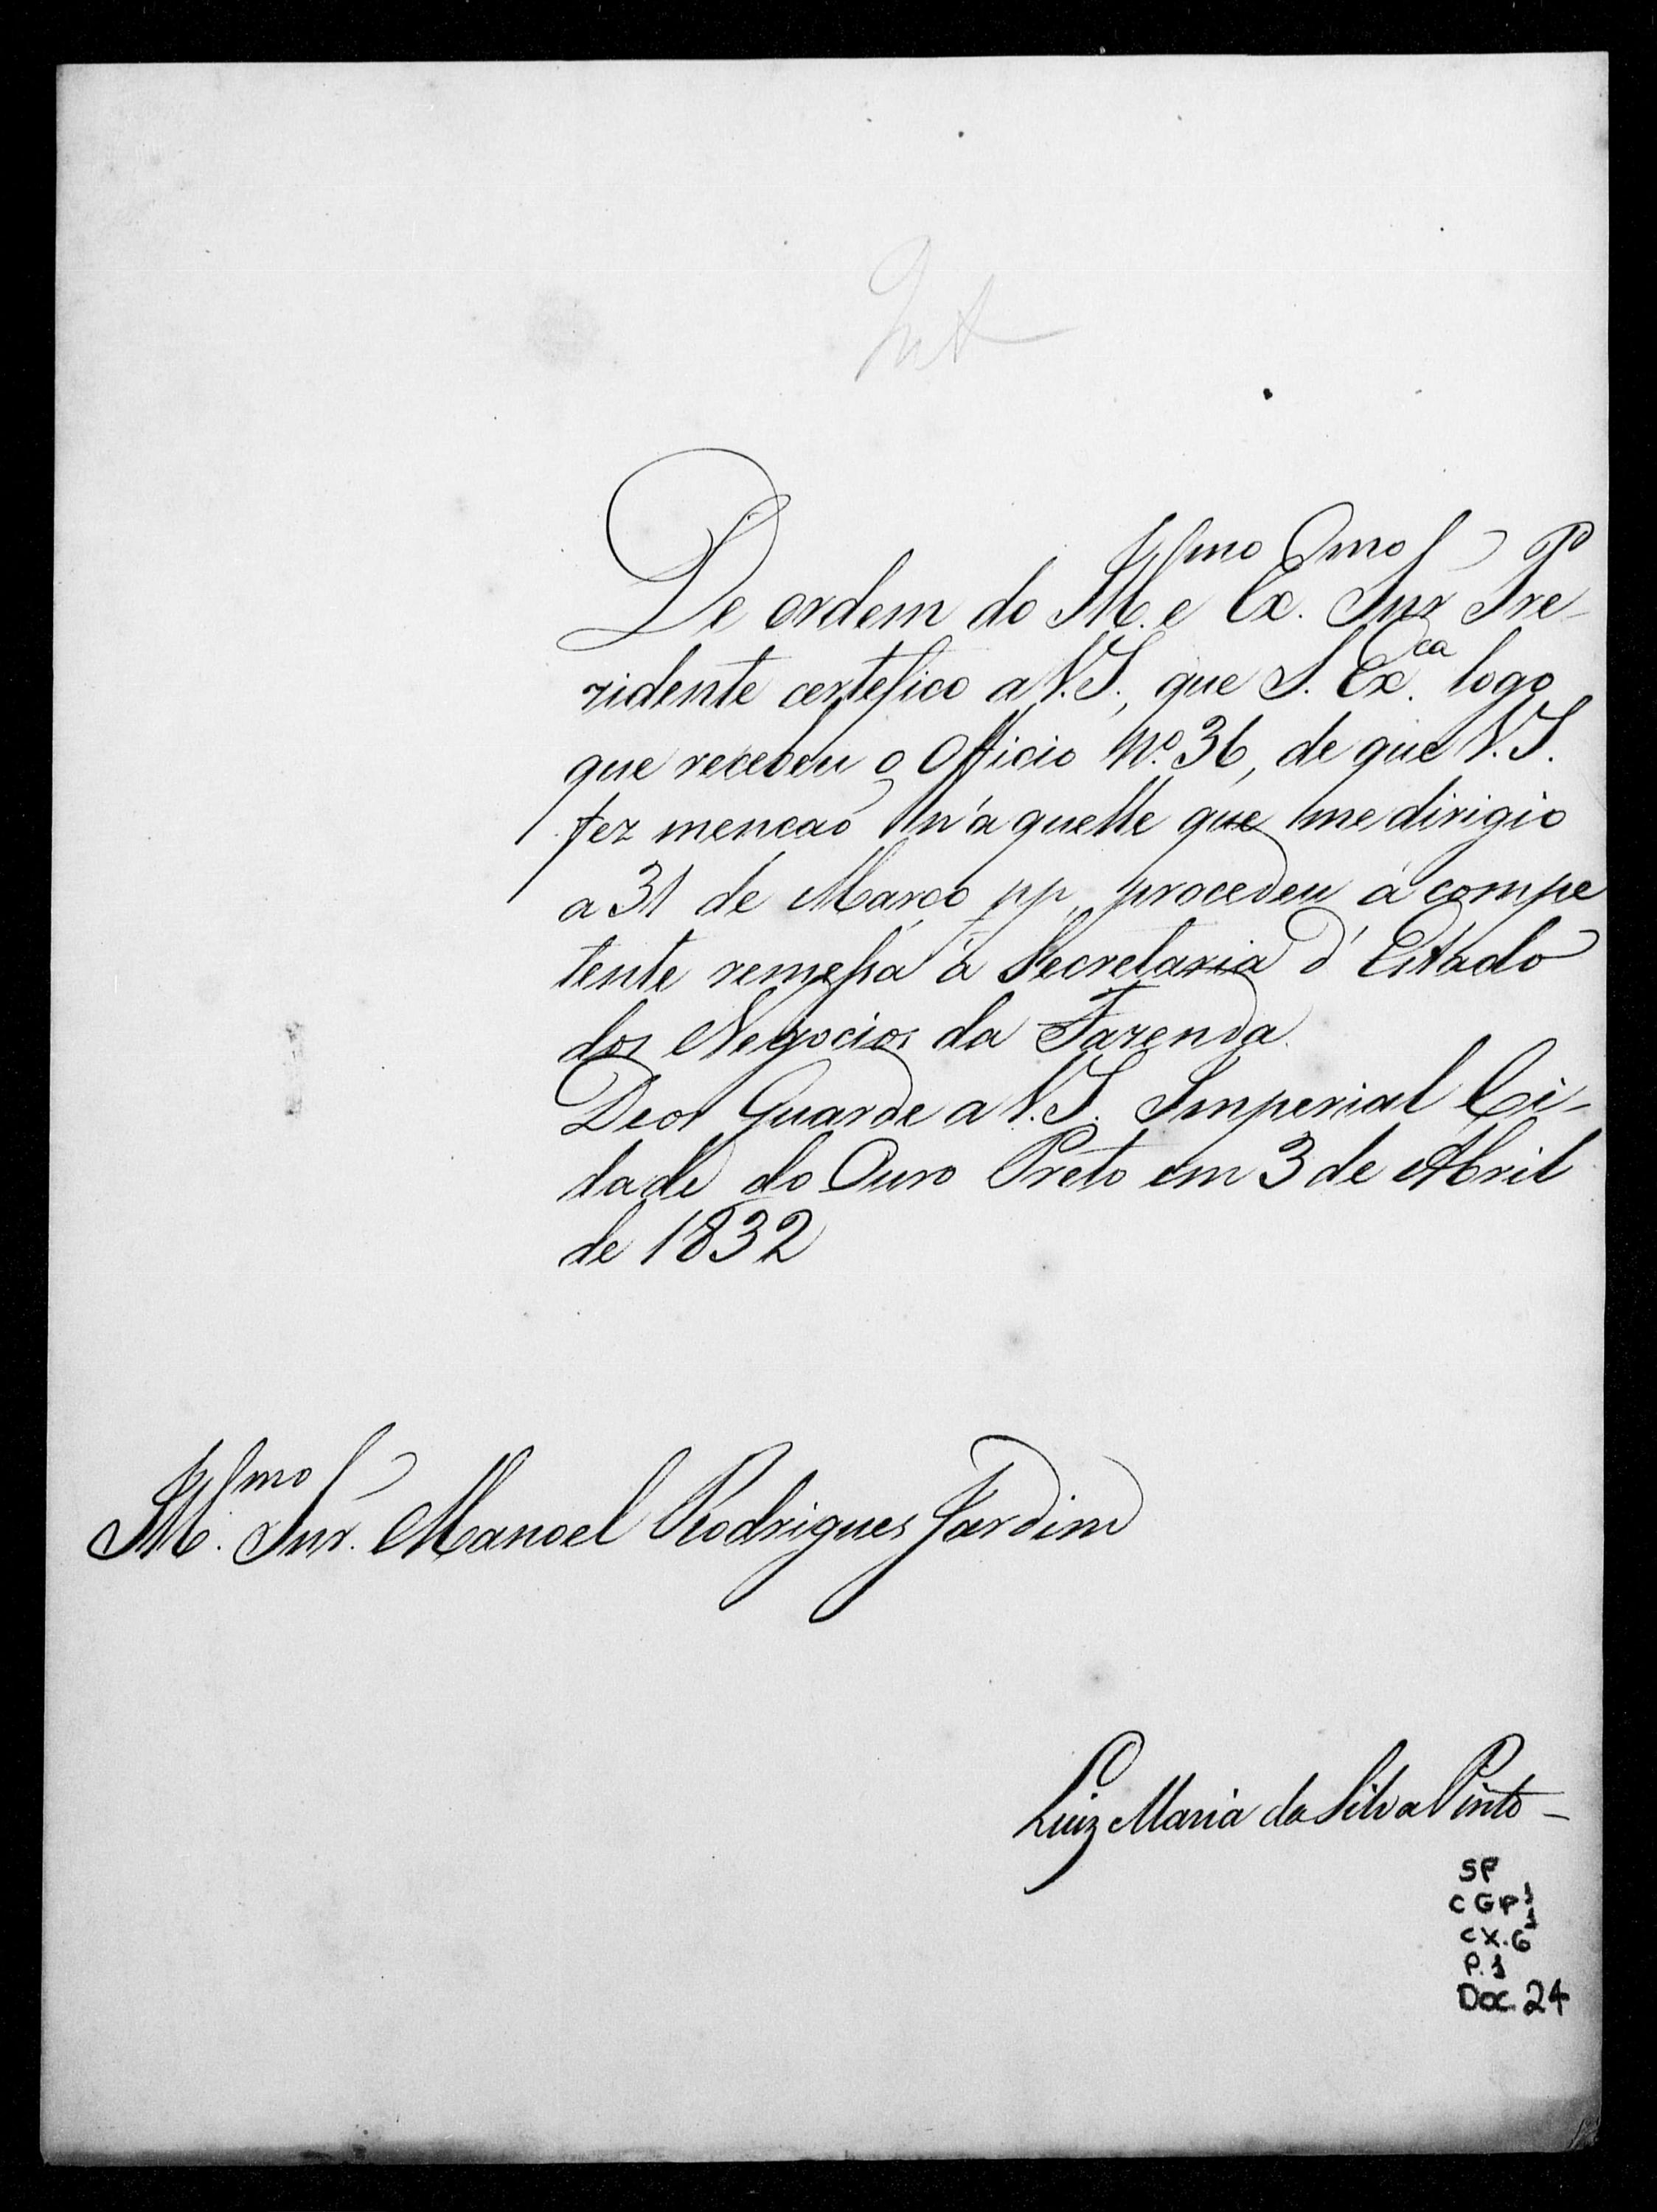 Int
De ordem do Ill.mo e Ex.mo Snr Pre-
zidente certefico a V.S., que S. Ex.ca logo
que recebeu o Officio Nº. 36, de que V.S.
fez mencaõ n'aquelle que me dirigio
a 31 de Março pp, procedeu á compe
tente remessa á Secretaria d'Estado
dos Negocios da Fazenda.
Deos Guarde a V.S. Imperial Ci-
dade do Ouro Preto em 3 de Abril
de 1832
Ill.mo Snr. Manoel Rodrigues Jardim
Luiz Maria da Silva Pinto -
SP
CGP1
CX.6
P.1
Doc. 24